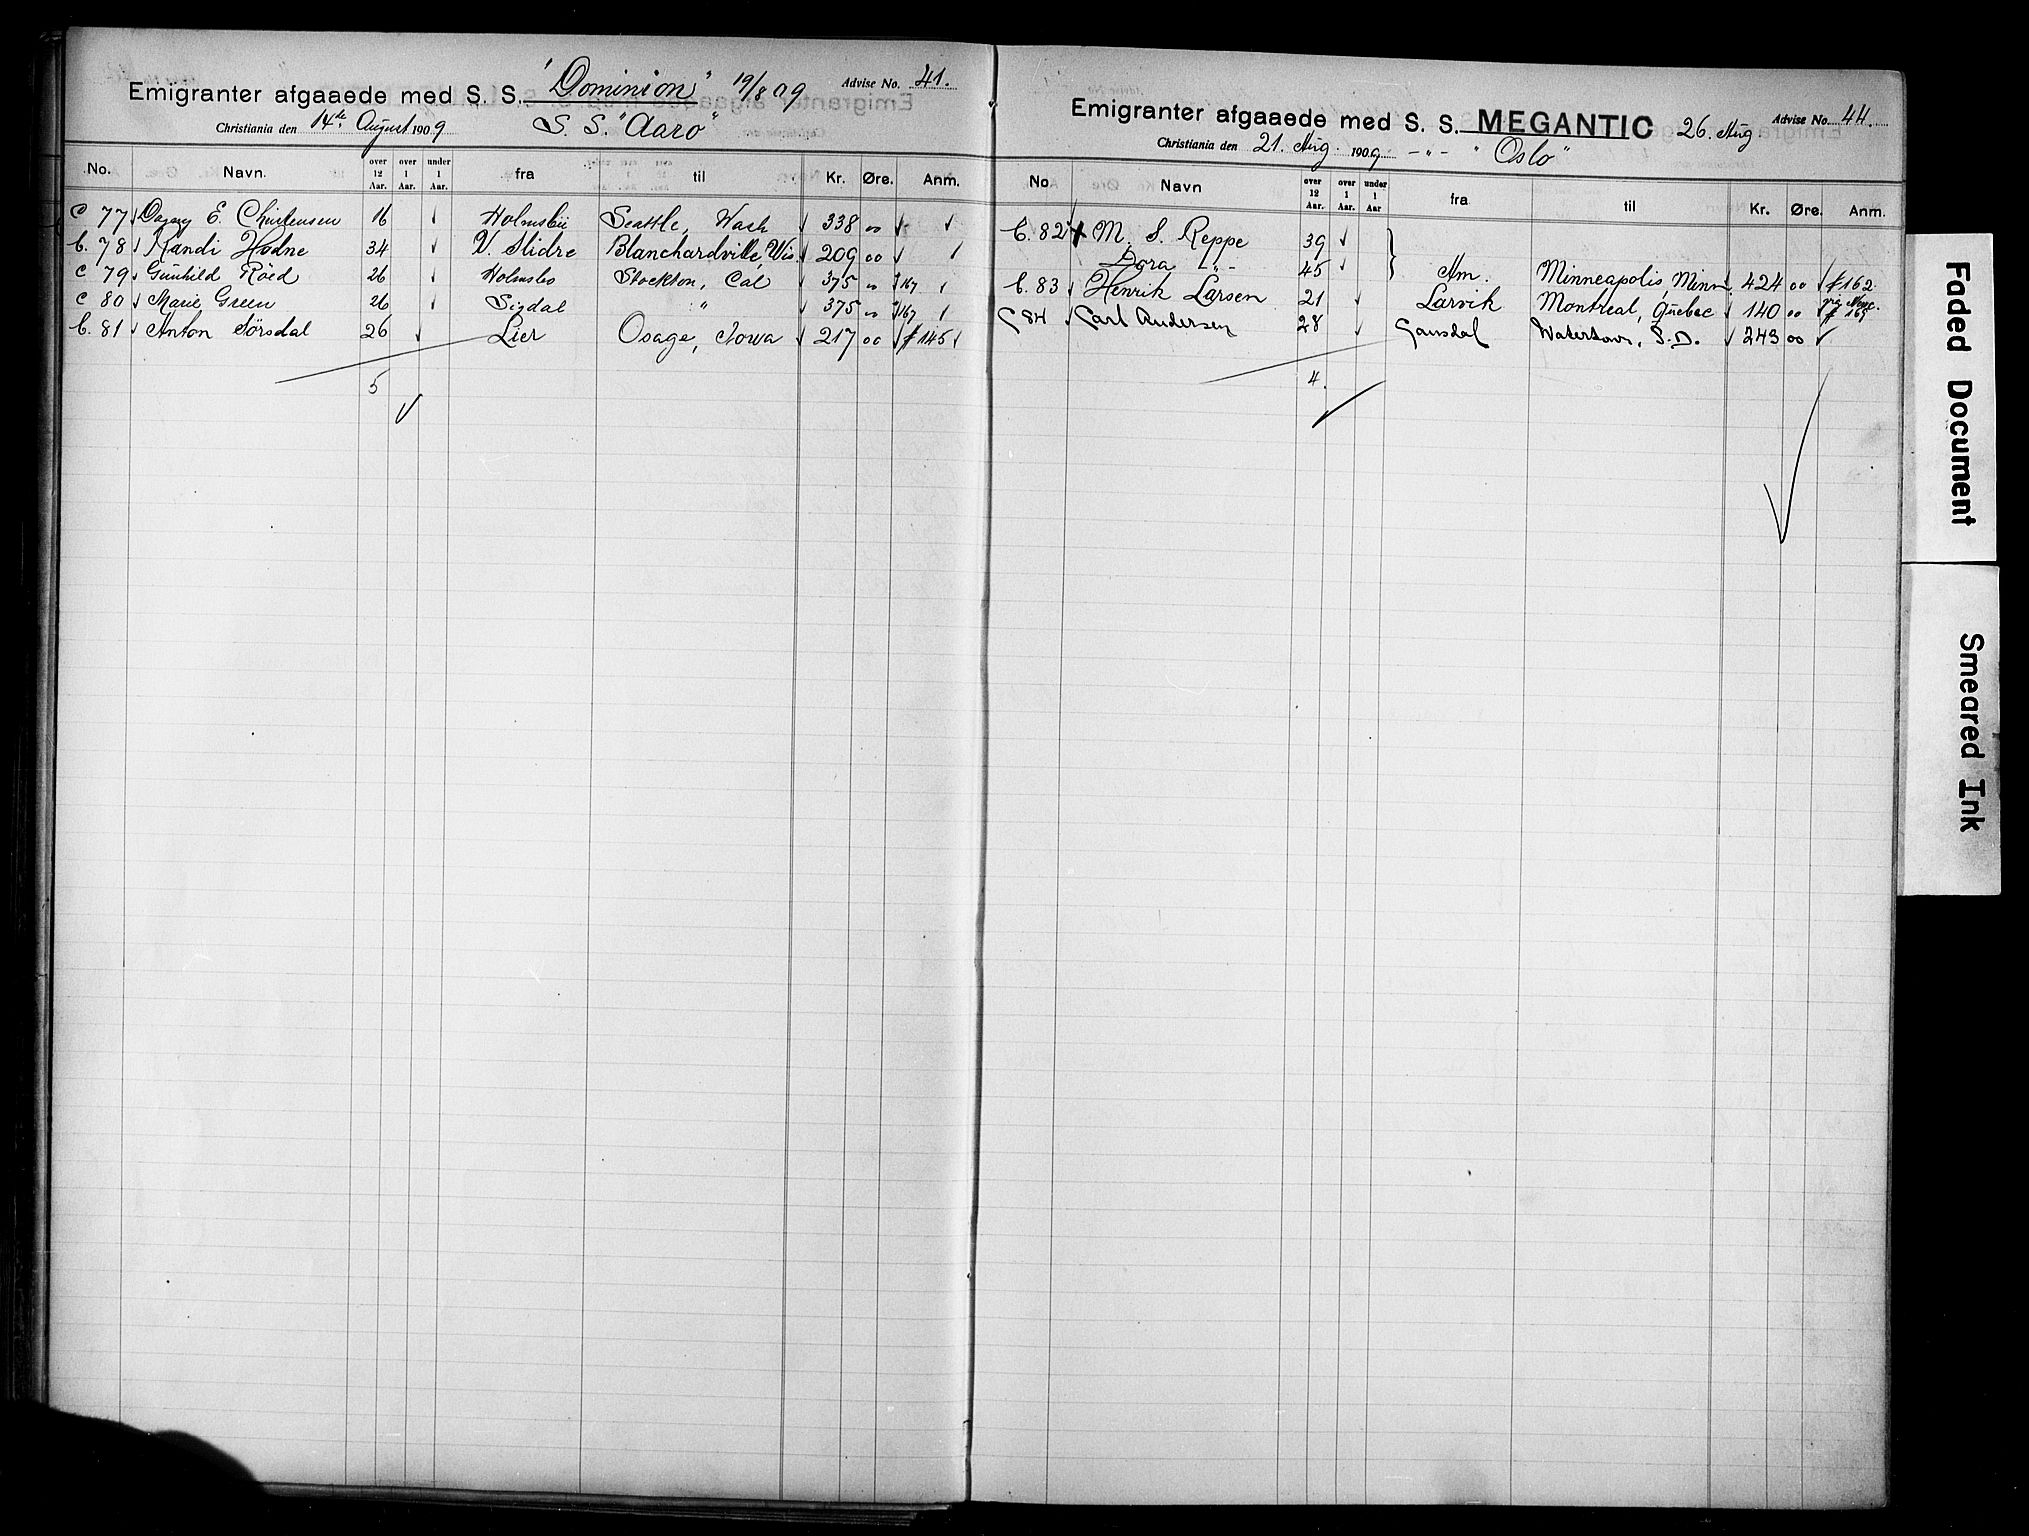 Emigranter afgaaede med S. S. "Dominion" 19/8 09 Advise No. 41.
Christiania den 14de August 1909 S. S. "Aaro"
No. Navn. over 12 Aar. over 1 Aar. under 1 Aar. fra til Kr. Øre. Anm.
C 77 Dagny E. Christensen 16 Holmsbu Seattle, Wash 338 00
C. 78 Randi Hodne 34 V. Slidre Blanchardville, Wis. 209 00
C 79 Gunhild Röed 26 Holmsbo Stockton, Cal 375 00 167
C 80 Marie Green 26 Sigdal " 375 00 167
C. 81 Anton Sörsdal 26 Lier Osage, Iowa 217 00 # 145
5
Emigranter afgaaede med S. S. MEGANTIC 26. Aug Advise No. 44.
Christiania den 21. Aug. 1909 -"- "Oslo"
No Navn over 12 Aar. over 1 Aar. under 1 Aar fra til Kr. Øre. Anm.
C. 82 M. S. Reppe 39
Dora -"- 45 Am. Minneapolis, Minn. 424 00 # 162
C. 83 Henrik Larsen 21 Larvik Montreal, Quebec 140 00 # 169
C 84 Carl Andersen 28 Gausdal Watertown, S.D. 243 00
4.
Faded Document
Smeared Ink